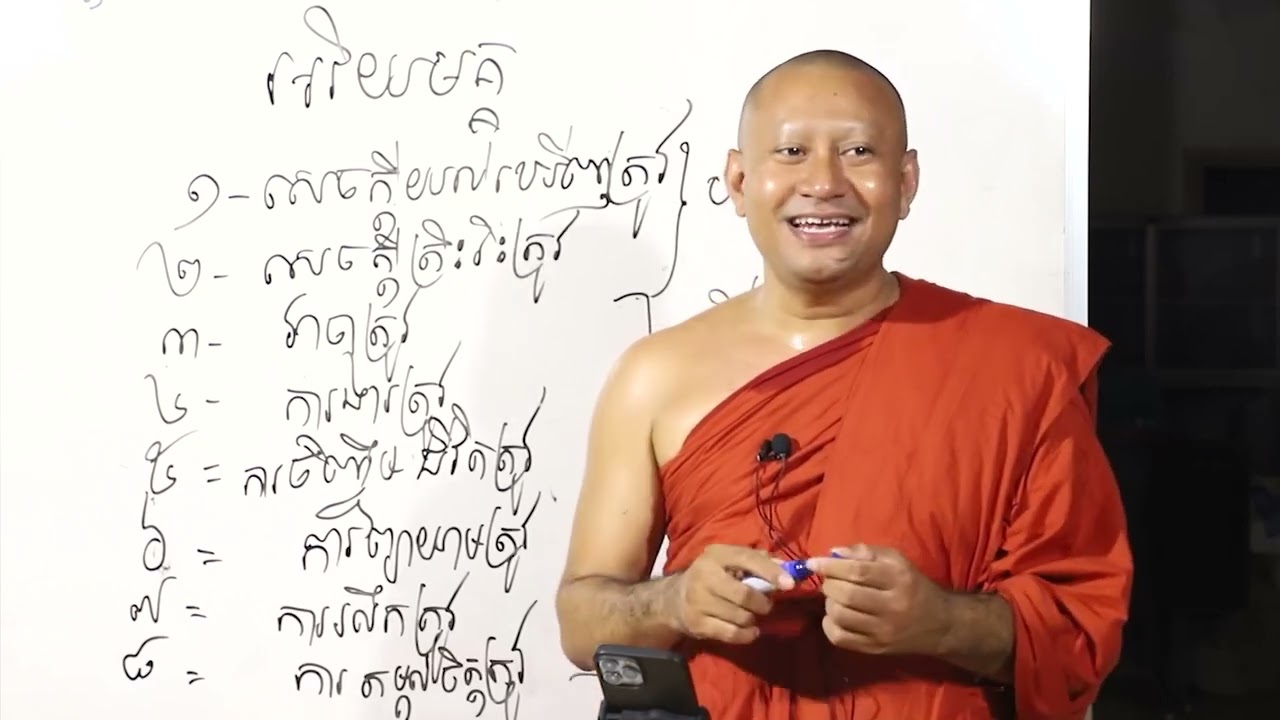 អរិយមគ្គ
១- សេចក្តីយល់ឃើញត្រូវ
២- សេចក្តីត្រិះរិះត្រូវ
៣- វាចាត្រូវ
៤- ការងារត្រូវ
៥= ការចិញ្ចឹមជីវិតត្រូវ
៦= ការព្យាយាមត្រូវ
៧= ការរលឹកត្រូវ
៨= ការតម្កល់ចិត្តត្រូវ